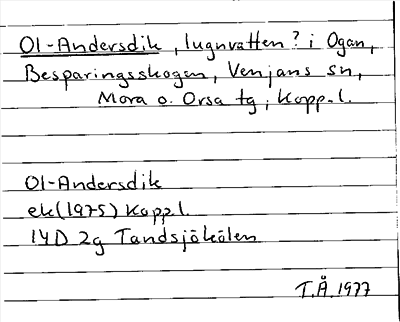 Ol-Andersdik, lugnvatten? i Ogan,
Besparingsskogen, Venjans sn,
Mora o. Orsa tg, Kopp. l.
Ol-Andersdik
ek (1975) Kopp l.
14D 2g Tandsjökölen
T.Å. 1977